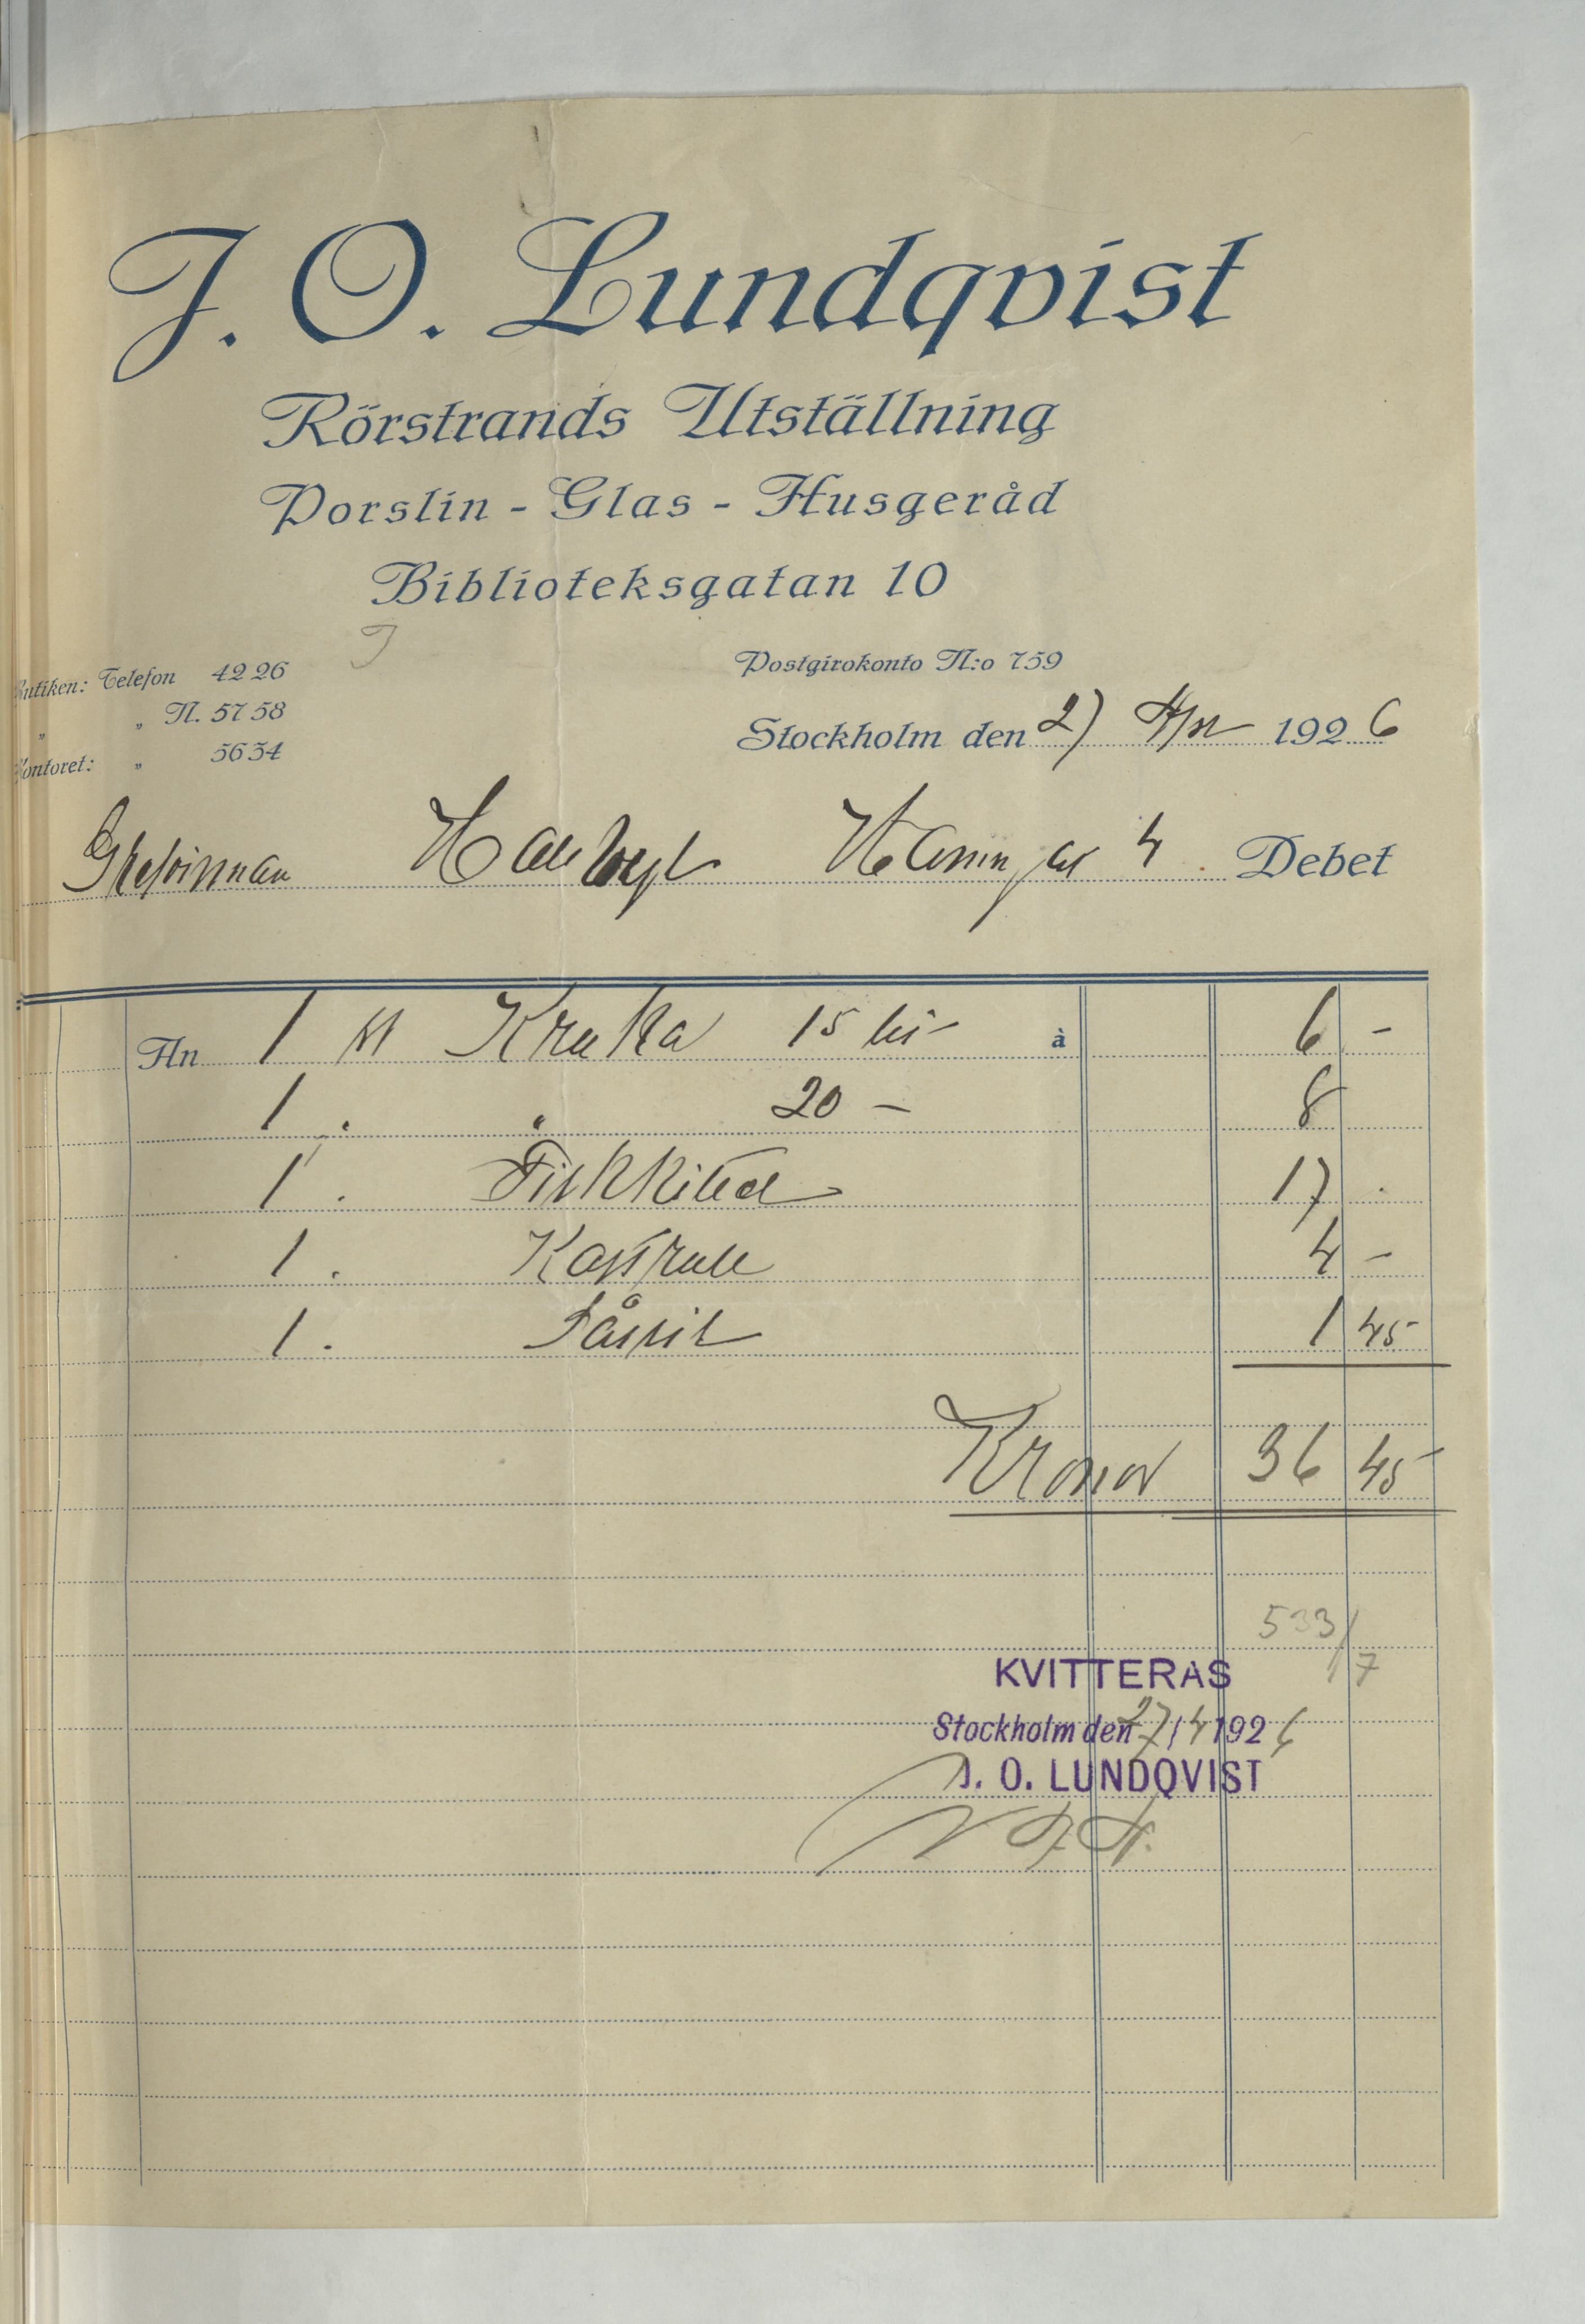 J. O. Lundqvist
Rörstrands Utställning
Porslin - Glas - Husgeråd
Biblioteksgatan 10
Butiken: Telefon 42 26
„ „ N. 57 58
Kontoret: „ 56 54
Postgirokonto N:o 759
Stockholm den 27 Apr 1926
Grefvinnan Hallwyl Hamngat 4. Debet
An 1 st Kruka 15 lit à 6 -
1 . „ 20 - 8
1 . Fiskkittel 17 .
1 . Kastrull 4 -
1 . Såssil 1 45
Kronor 36 45
533/7
KVITTERAS
Stockholm den 27/4 1926
J. O. LUNDQVIST